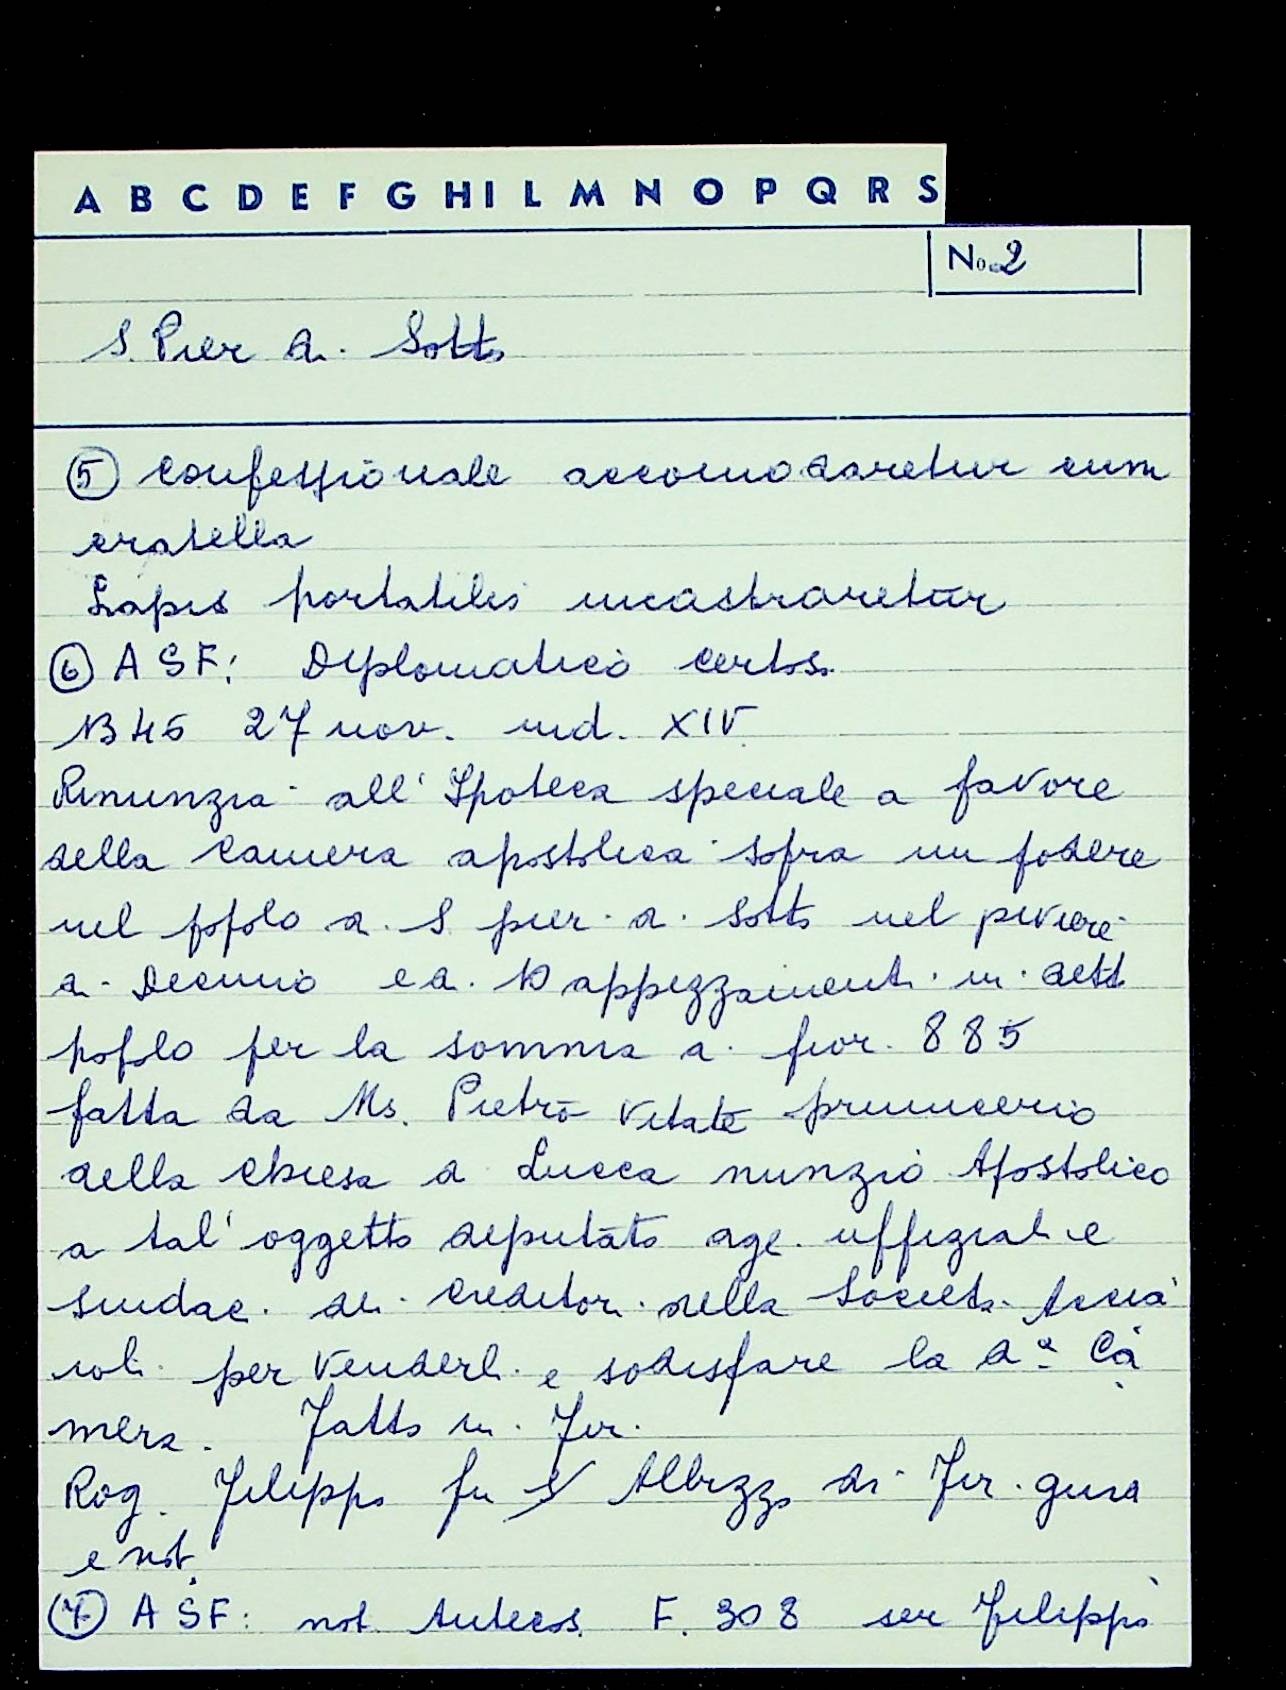 A B C D E F G H I L M N O P Q R S
No. 2
S. Pier di Sotto
⑤ confessionale accomodaretur cum
cratella
Lapis portatilis incastraretur
⑥ ASF: Diplomatico certos.
1345 27 nov. ind. XIV
Rinunzia all' Ipoteca speciale a favore
della Camera apostolica sopra un podere
nel popolo di S pier di sotto nel piviere
di Decimo e di 10 appezzamenti in detto
popolo per la somma di fior. 885
fatta da Ms. Pietro Vitate primicerio
della chiesa di Lucca nunzio Apostolico
a tal' oggetto deputato agl. uffiziali e
sindac. dei creditori della Società Accia
ioli per venderli e sodisfare la dª Ca
mera. Fatto in Fir.
Rog. Filippo fu S Albizzo di Fir. giud
e not.
⑦ ASF: not. Antecos. F. 308 ser Filippo